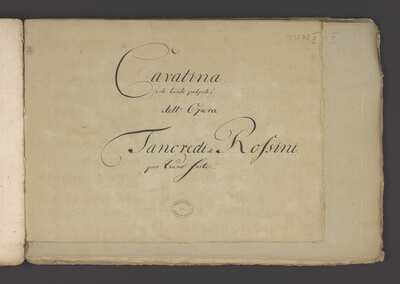 Cavatina
di tanti palpiti
dell' Opera
Tancredi Rossini
per Piano forte